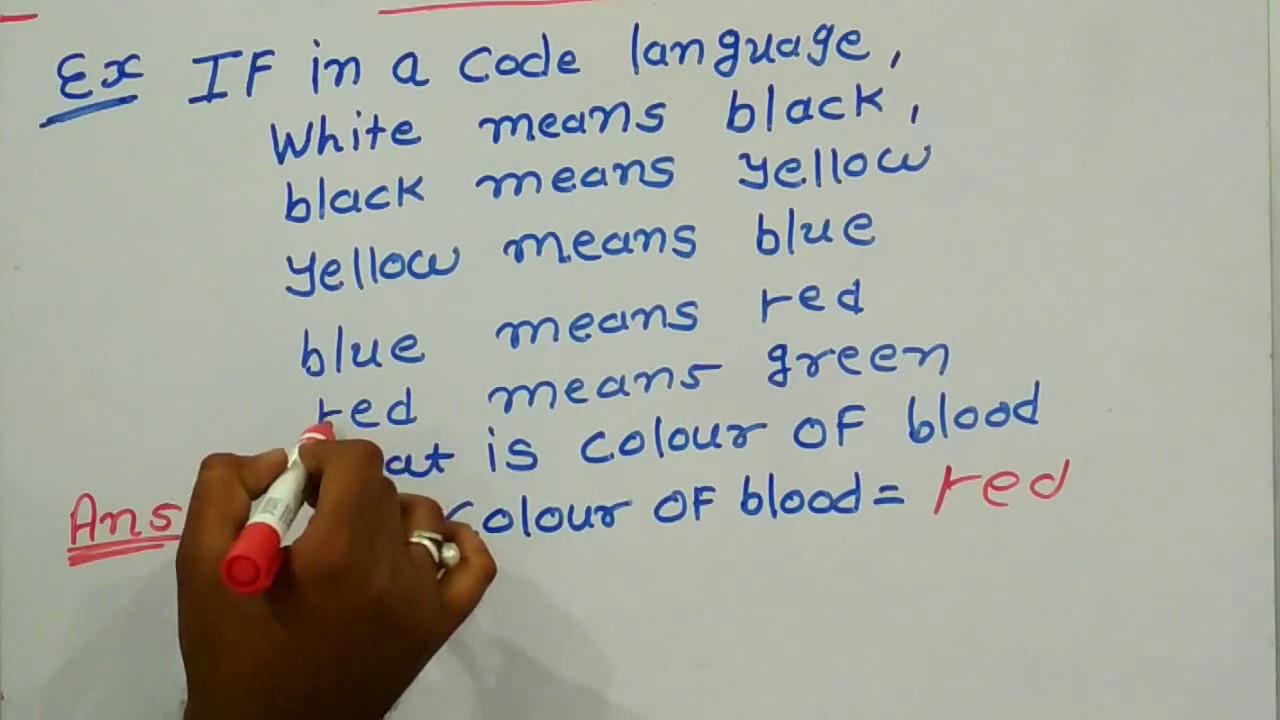 Ex IF in a code language,
White means black,
black means yellow
yellow means blue
blue means red
red means green
is colour OF blood
colour OF blood = red
Ans